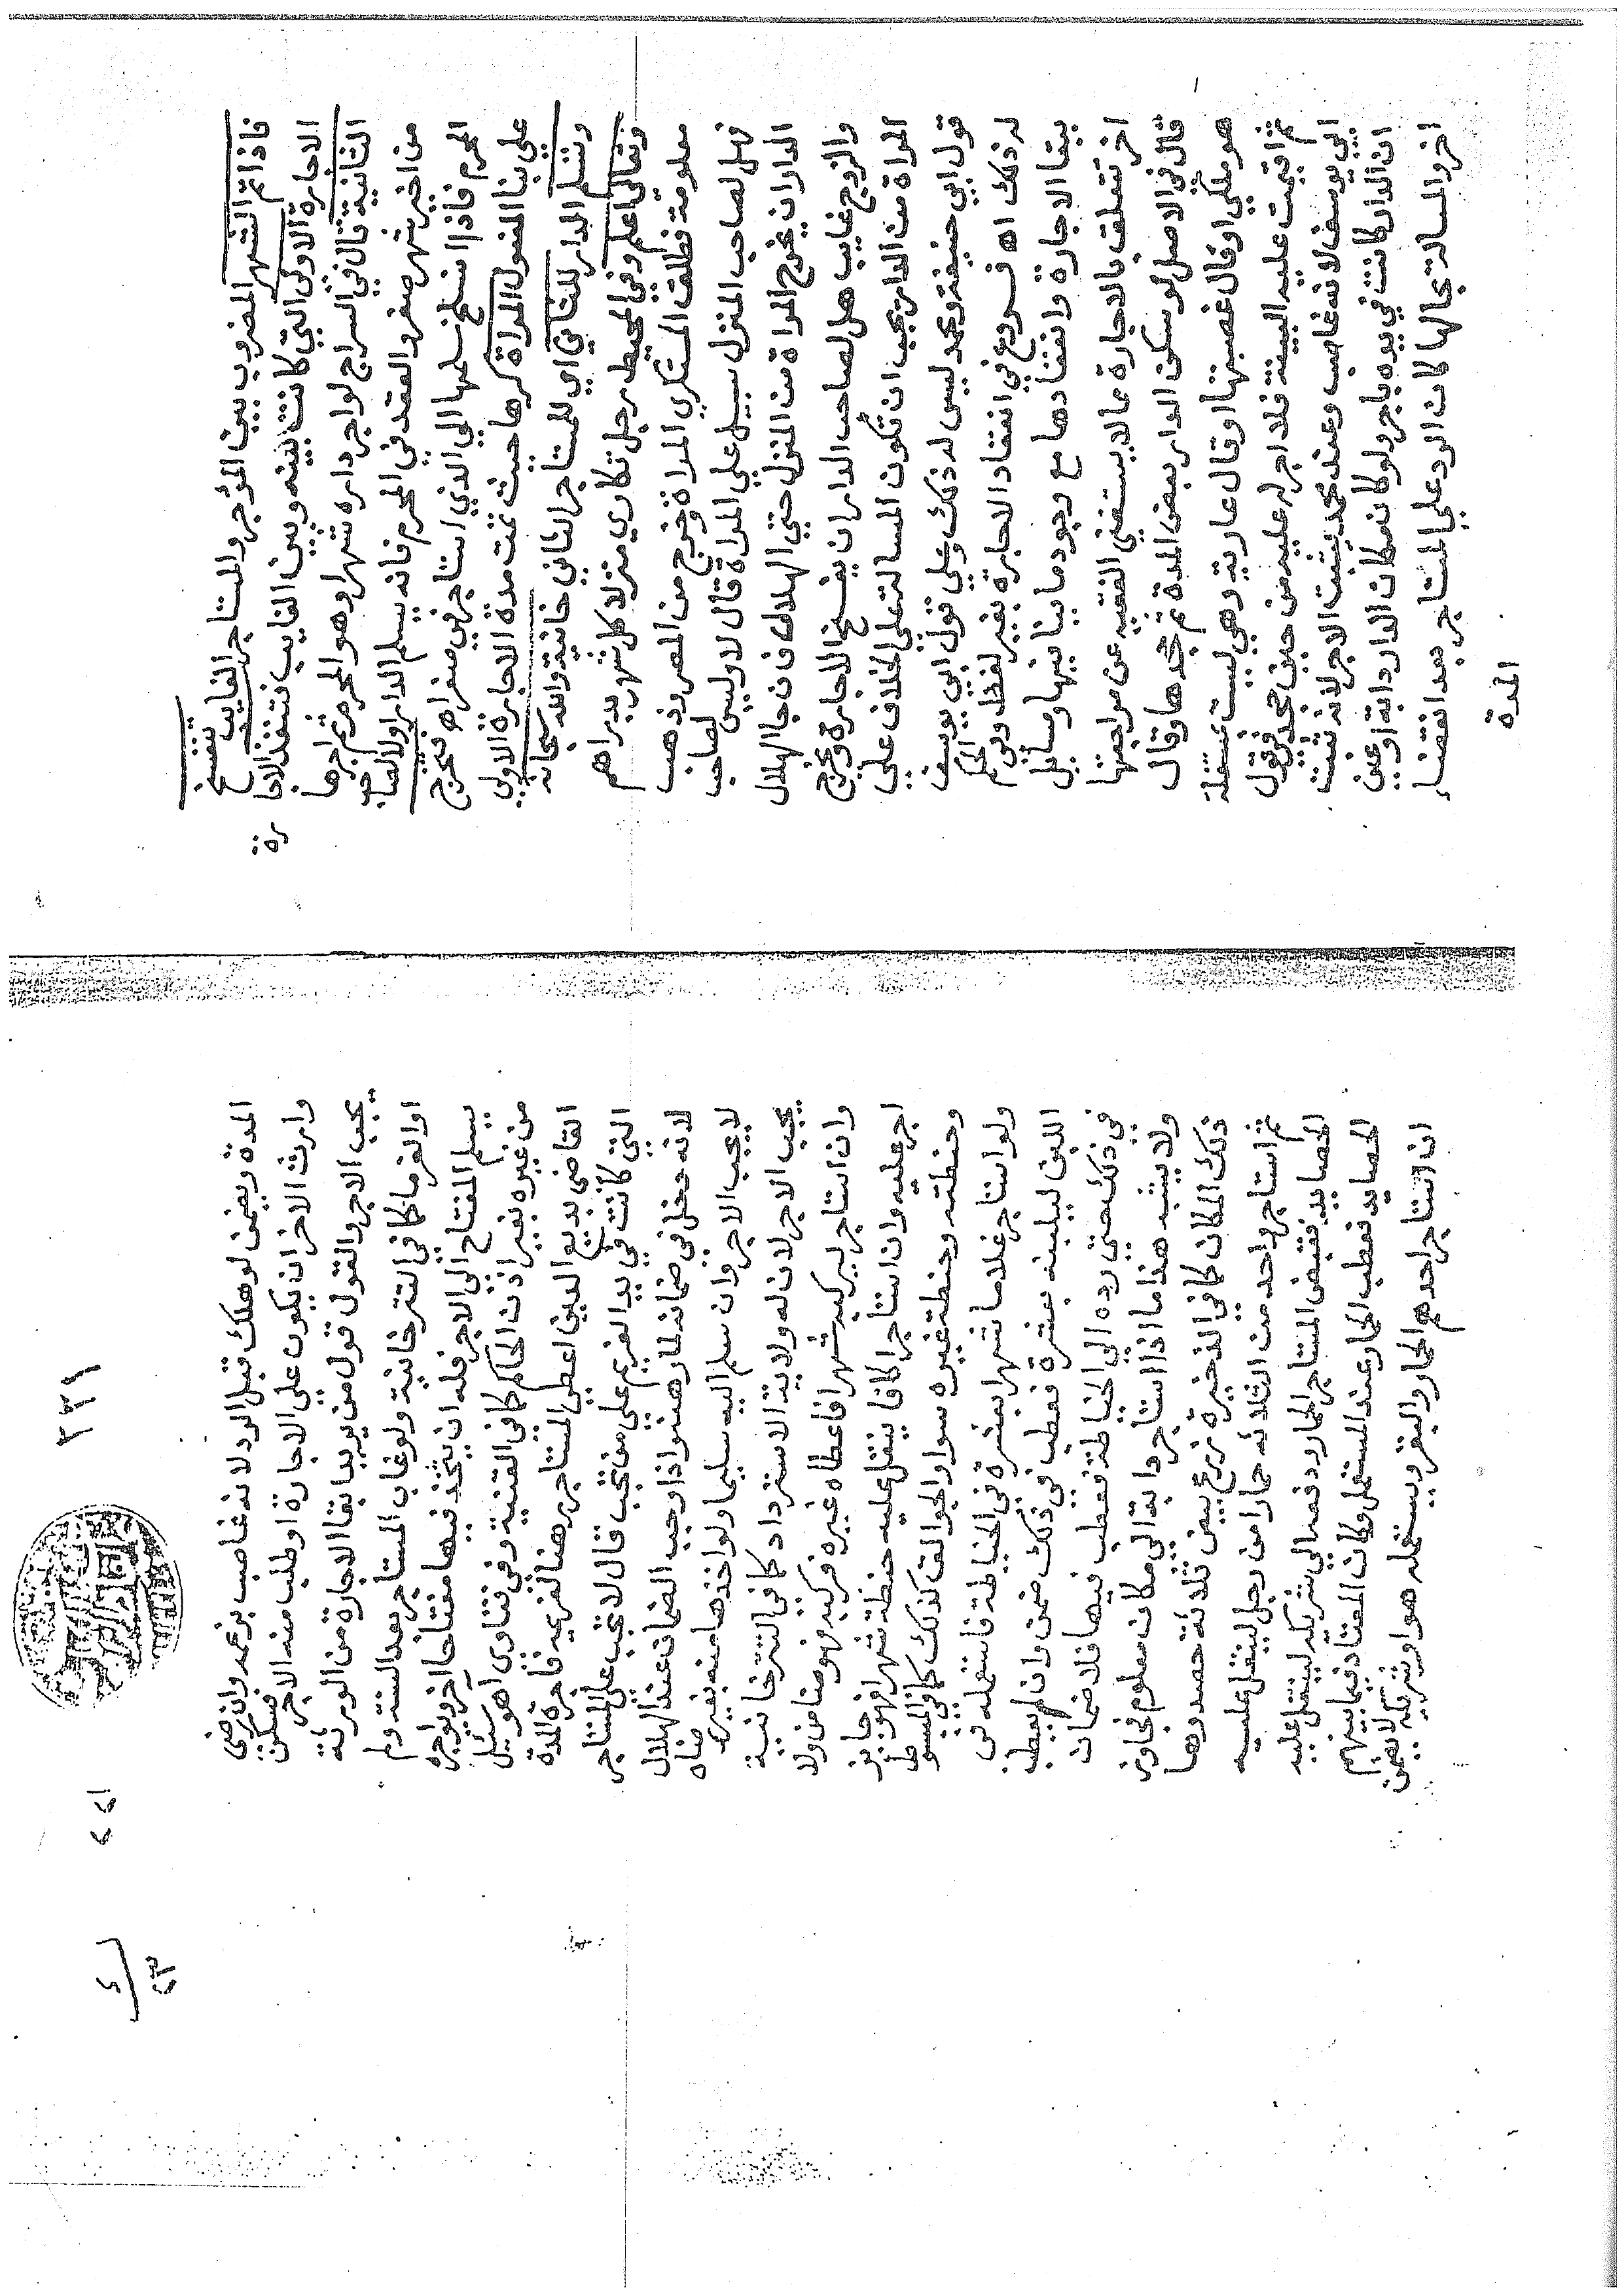 فاذا تم الشهر المضروب بين المؤجر والمستاجر الغايب تنفسخ
الاجارة الاولى التي كانت بينه وبين الغايب فتنفذ الاجا
رة
الثانية قال في السراج لو اجر داره شهرا وهو المحرم ثم اجرها
من اخر شهر صفر والعقد في المحرم فانه يسلم الدار اولا لصاحب
المحرم فاذا انسلخ سلمها الى الذي استاجر في صفر اهـ فتخرج
على بنا الفضول المراة كرها حيث تمت مدة الاجارة الاولى
وتسلم الدار للثاني اي للمستاجر الثاني خانية والله سبحانه
وتعالى اعلم وفي المحيط رجل تكاري منزلا كل شهر بدراهم
معلومة فطلق المستكري المراة وخرج من المصر وذهب
فهل لصاحب المنزل سبيل على المراة قال لا وليس لصاحب
الدار ان يخرج المراة من المنزل حتى الهلال فان جا الهلال
والزوج غايب هل لصاحب الدار ان يفسخ الاجارة ويخرج
المراة من الدار يجب ان تكون المسالة على الخلاف على
قول ابي حنيفة ومحمد ليس له ذلك وعلى قول ابي يوسف
له ذلك اهـ فروع في انعقاد الاجارة بغير لفظ وفي الحكم
ببقا الاجارة وانعقادها مع وجود ما ينافيها ومسايل
اخر تتعلق بالاجارة مما لا يستغني الفقيه عن مراجعتها
قال في الاصل لو سكن الدار بعض المدة ثم جحدها وقال
هو ملكي او قال غصبتها او قال عارية وهي ليست مستغلة
ثم اقيمت عليه البينة فلا اجر له عليه من حين جحد في قول
ابي يوسف لانه غاصب وعند محمد يثبت الاجر لانه ثبت
ان الدار كانت في يده باجر ولو كان مكان الدار دابة او عين
اخر والمسالة بحالها كان الرد على المستاجر بعد انقضاء
المدة
المدة ويضمن لو هلك قبل الرد لانه غاصب بزعمه وان رضي
وارث الاخر ان يكون على الاجارة او طلب منه الاجر فسكن
يجب الاجر والقول قول من يريد ابقا الاجارة من الورثة
او الغرما كما في التترخانية ولو غاب المستاجر بعد السنة ولم
يسلم المفتاح الى الاجر فله ان يتخذ فيها مفتاحا اخر ويواجره
من غيره بغير اذن الحاكم كما في القنية وفي فتاوى اهو سئل
القاضي بديع الدين اعطى المستاجر رهنا لغريمه فاجرة المدة
التي كانت في يد الغريم على من تجب قال لا تجب على المستاجر
لانه دخل في ضمانه لما رهنه واذا وجب الضمان عند الهلاك
لا يجب الاجر وان سلم اليه سليما ولو اخذها منه بغير رضاه
يجب الاجر لان له ولاية الاسترداد كما في التترخانية
وان استاجر ليركبه شهرا فاعطاه غيره فركبه فهو ضامن ولا
اجر عليه وان استاجر اكافا ينقل عليه حنطة شهرا فهو جايز
وحنطته وحنطة غيره سوا والجوالق كذلك كما في المبسوط
ولو استاجر غلاما شهرا بعشرة في الخياطة فاستعمله في
اللبن ليلبنه بعشرة فعطب في ذلك ضمن وان لم يعطب
في ذلك حتى رده الى الخياطة فعطب فيها فلا ضمان
ولا يشبه هذا ما اذا استاجر دابة الى مكان معلوم فجاوز
ذلك المكان كما في الذخيرة زرع بين ثلاثة حصدوها
ثم استاجر واحد من الثلاثة حمارا من رجل لينقل عليه
الحصايد فقبض المستاجر الحمار ودفعه الى شريكه لينقل عليه
الحصايد فعطب الحمار عند المستعمل وكان المعتاد فيما بينهم
ان استاجر احدهم الحمار والبقر ويستعمله هو او شريكه لا يضمن
٢٣٩